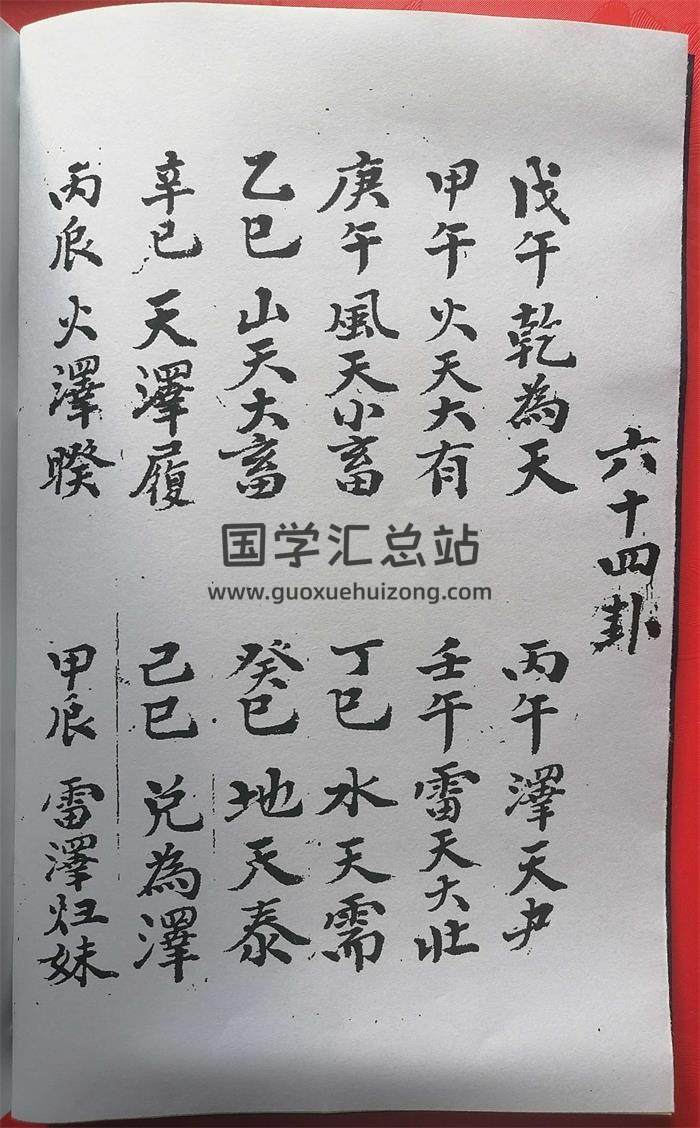 六十四卦
戊午乾為天 丙午澤天夬
甲午火天大有 壬午雷天大壯
庚午風天小畜 丁巳水天需
乙巳山天大畜 癸巳地天泰
辛巳天澤履 己巳兑為澤
丙辰火澤暌 甲辰雷澤归妹
国学汇总站
www.guoxuehuizong.com